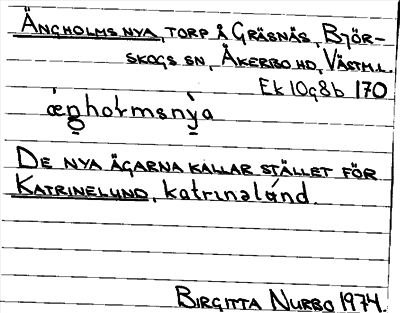 ÄNGHOLMS NYA, TORP Å GRÄSNÄS, BJÖR-
SKOGS SN, ÅKERBO HD, VÄSTM.L.
Ek 10g8b 170
æŋhoɫmsnya
DE NYA ÄGARNA KALLAR STÄLLET FÖR
KATRINELUND, katrɩnəlánd.
BIRGITTA NURBO 1974.